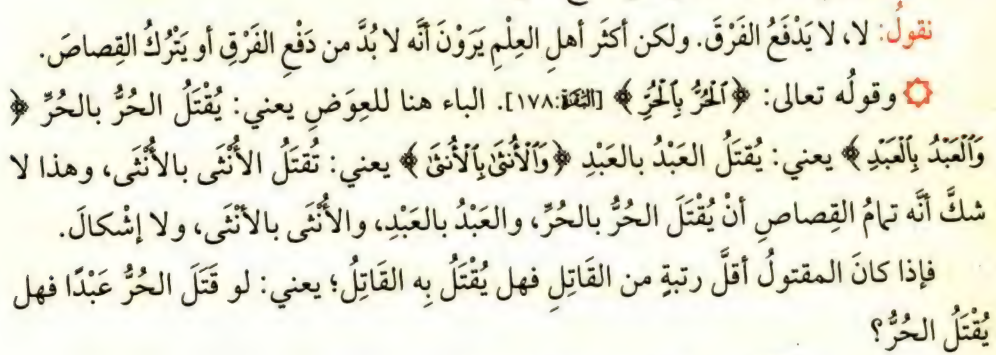 نقولُ: لا، لا يَدْفَعُ الفَرْقَ. ولكن أكثَر أهلِ العِلْمِ يَرَوْنَ أنَّه لا بُدَّ من دَفْعِ الفَرْقِ أو يَتْرُكُ القِصاصَ.
۞ وقولُه تعالى: ﴿ٱلْحُرُّ بِٱلْحُرِّ﴾ [البقرة:١٧٨]. الباء هنا للعِوَضِ يعني: يُقْتَلُ الحُرُّ بالحُرِّ ﴿
وَٱلْعَبْدُ بِٱلْعَبْدِ﴾ يعني: يُقتَلُ العَبْدُ بالعَبْدِ ﴿وَٱلْأُنثَىٰ بِٱلْأُنثَىٰ﴾ يعني: تُقتَلُ الأُنْثَى بالأُنْثَى، وهذا لا
شكَّ أنَّه تمامُ القِصاصِ أنْ يُقْتَلَ الحُرُّ بالحُرِّ، والعَبْدُ بالعَبْدِ، والأُنْثَى بالأنْثَى، ولا إشْكالَ.
فإذا كانَ المقتولُ أقلَّ رتبةٍ من القَاتِلِ فهل يُقْتَلُ بِه القَاتِلُ؛ يعني: لو قَتَلَ الحُرُّ عَبْدًا فهل
يُقْتَلُ الحُرُّ؟